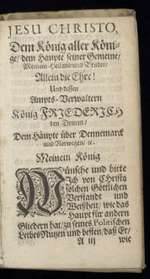 JESU CHRISTO,
Dem König aller Köni-
ge/ dem Haupte seiner Gemeine/
Meinem Heiland und
Allein die Ehre!
Und dessen
Ampts-Verwaltern
König FRIEDERICH
dem
Dem Häupte über Dennemarck
und Norwegen/ ꝛc.
Meinem König
Wünsche und bitte
ich von Christo
solchen Göttlichen
Verstand und
Weißheit/ wie das
Haupt für andern
Gliedern hat/ zu seines Politischen
Leibes Nutzen und besten/ daß Er/
A iij wie